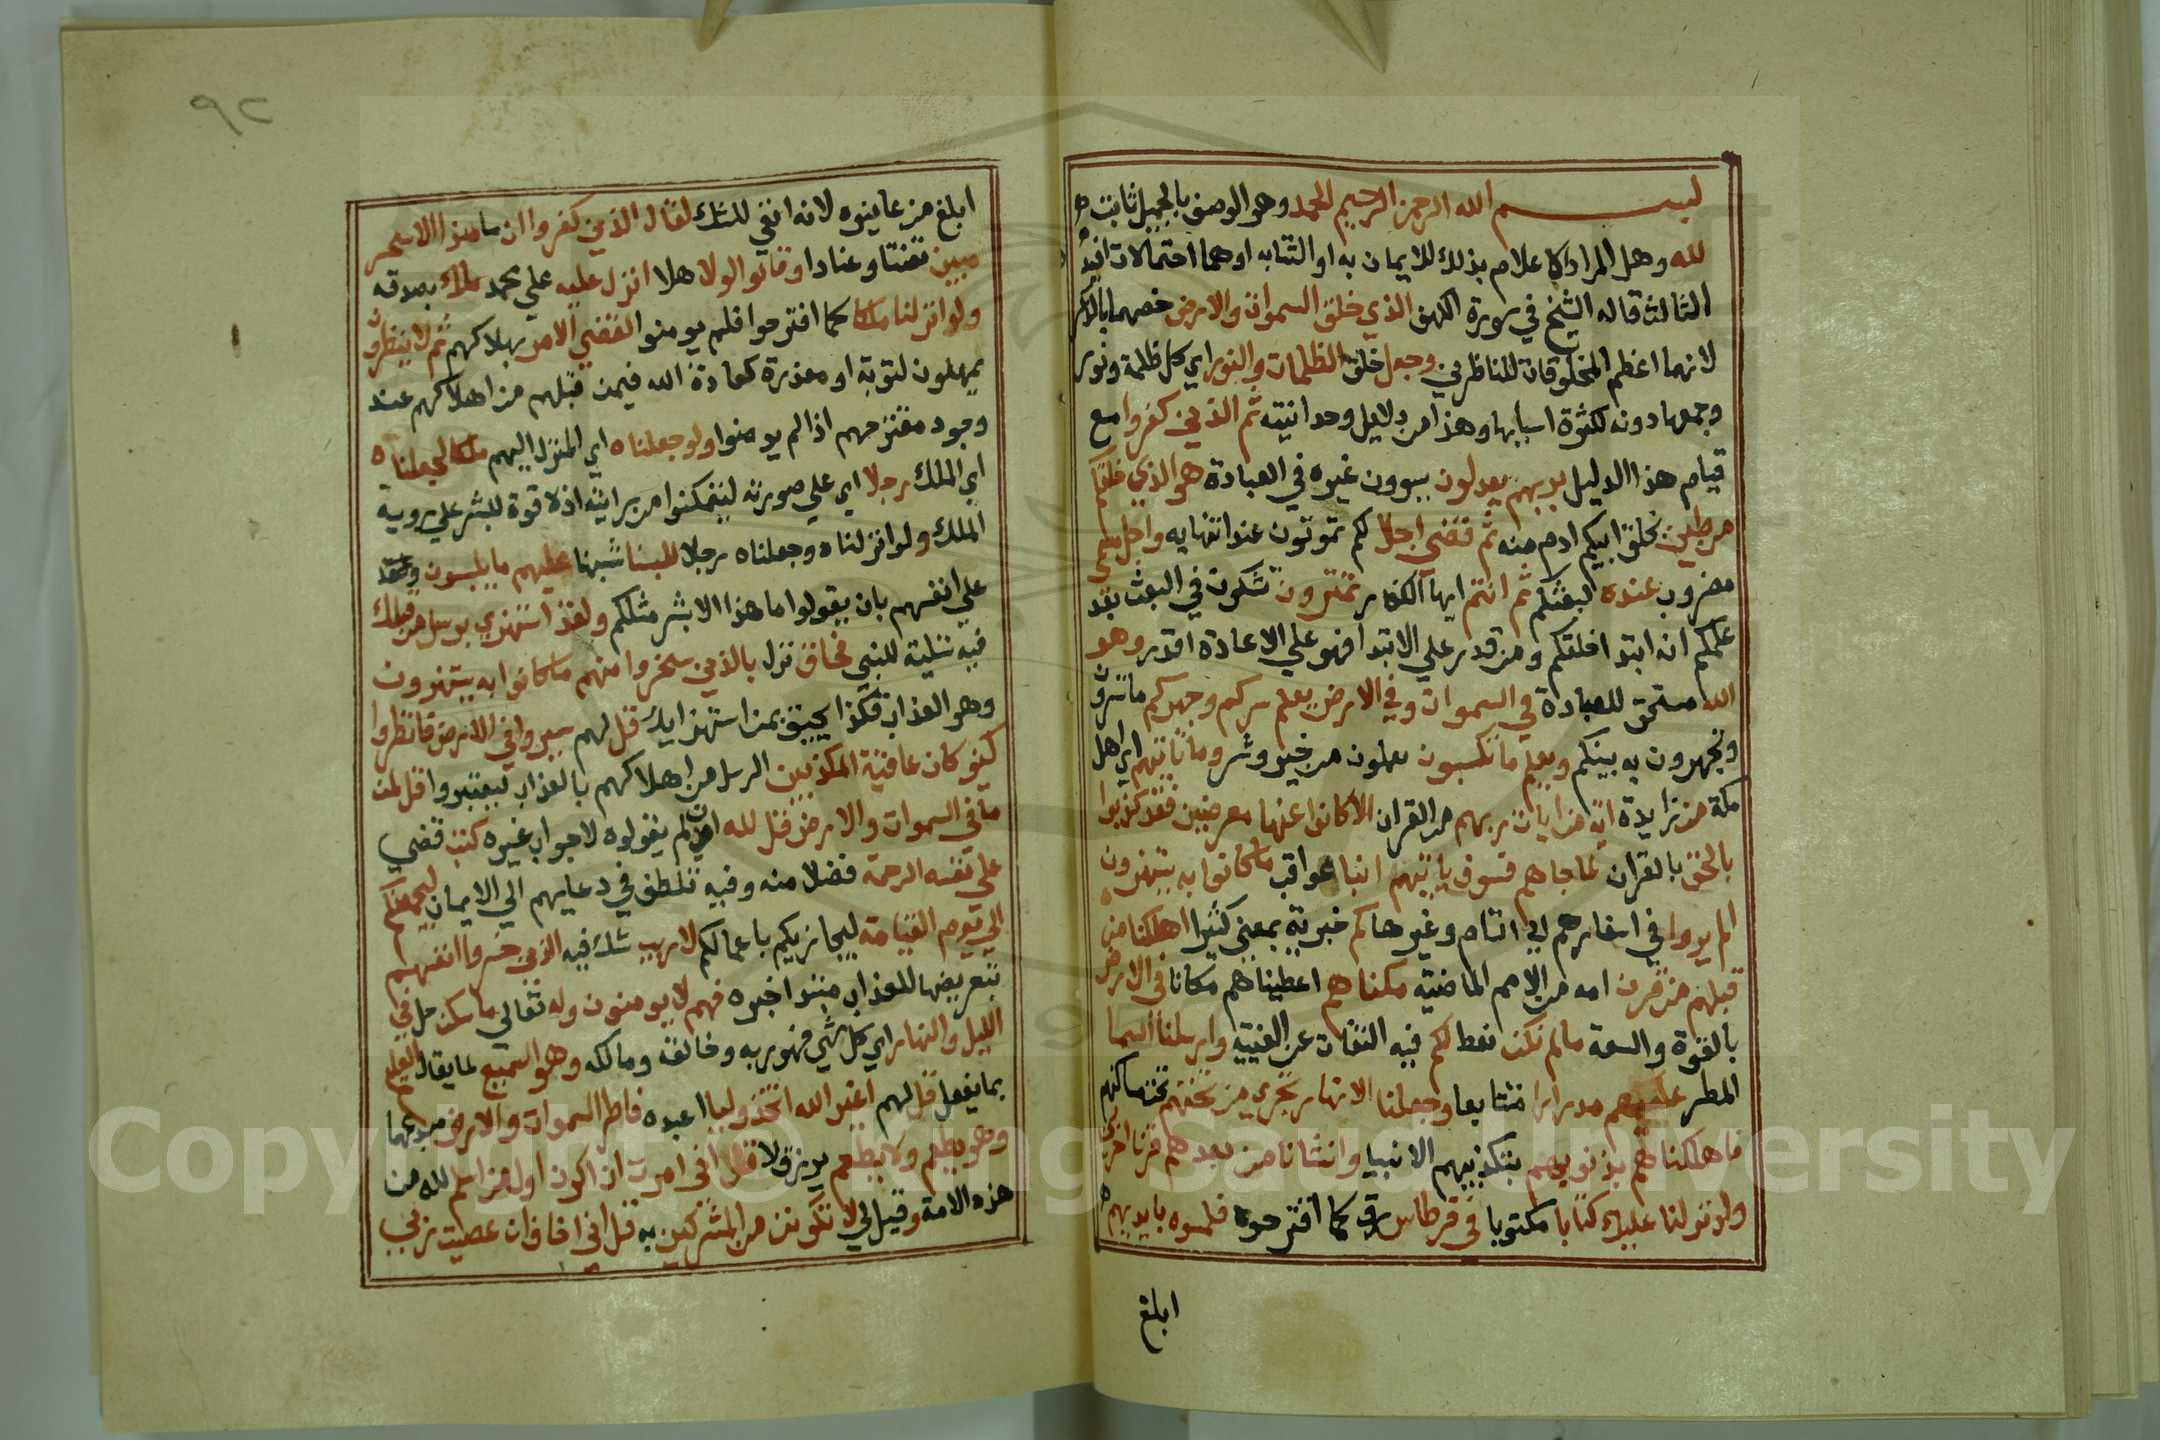 بسم الله الرحمن الرحيم الحمد وهو الوصف بالجميل ثابت
لله وهل المراد الاعلام بذلك للايمان به او الثنا به او هما احتمالات افيدها
الثالث قاله الشيخ في سورة الكهف الذي خلق السموات والارض خصهما بالذكر
لانهما اعظم المخلوقات للناظرين وجعل خلق الظلمات والنور اي كل ظلمة ونور
وجمعها دونه لكثرة اسبابها وهذا من دلايل وحدانيته ثم الذين كفروا مع
قيام هذا الدليل بربهم يعدلون يسوون غيره في العبادة هو الذي خلقكم
من طين بخلق ابيكم ادم منه ثم قضي اجلا لكم تموتون عند انتهايه واجل مسمي
مضروب عنده لبعثكم ثم انتم ايها الكفار تمترون تشكون في البعث بعد
علمكم انه ابتدا خلقكم ومن قدر علي الابتدا فهو علي الاعادة اقدر وهو
الله مستحق للعبادة في السموات وفي الارض يعلم سركم وجهركم ما تسرون
وتجهرون به بينكم ويعلم ما تكسبون تعملون من خير وشر وما تاتيهم اي اهل
مكة من زايدة اية من ايات ربهم من القران الا كانوا عنها معرضين فقد كذبوا
بالحق بالقران لما جاهم فسوف ياتيهم انبا عواقب ما كانوا به يستهزون
الم يروا في اسفارهم الي الشام وغيرها كم خبرية بمعني كثيرا اهلكنا من
قبلهم من قرن امه من الامم الماضية مكناهم اعطيناهم مكانا في الارض
بالقوة والسعة ما لم نمكن نعط لكم فيه التفات عن الغيبة وارسلنا السما
المطر عليهم مدرارا متتابعا وجعلنا الانهار تجري من تحتهم تحت مساكنهم
فاهلكناهم بذنوبهم بتكذيبهم الانبيا وانشانا من بعدهم قرنا اخرين
ولو نزلنا عليك كتابا مكتوبا في قرطاس رق كما اقترحوه فلمسوه بايديهم
ابلغ
٩٢
ابلغ من عاينوه لانه انفي للشك لقال الذين كفروا ان ما هذا الا سحر
مبين تعنتا وعنادا وقالوا لولا هلا انزل عليه علي محمد ملك يصدقه
ولو انزلنا ملكا كما اقترحوا فلم يومنوا لقضي الامر بهلاكهم ثم لا ينظرون
يمهلون لتوبة او معذرة كعادة الله فيمن قبلهم من اهلاكهم عند
وجود مقترحهم اذا لم يومنوا ولو جعلناه اي المنزل اليهم ملكا لجعلناه
اي الملك رجلا اي علي صورته ليتمكنوا من رايته اذ لا قوة للبشر علي روية
الملك ولو انزلناه وجعلناه رجلا للبسنا شبهنا عليهم ما يلبسون
علي انفسهم بان يقولوا ما هذا الا بشر مثلكم ولقد استهزي برسل من قبلك
فيه تسلية للنبي فحاق نزل بالذين سخروا منهم ما كانوا به يستهزون
وهو العذاب فكذا يحيق بمن استهزا بك قل لهم سيروا في الارض فانظروا
كيف كان عاقبة المكذبين الرسل من اهلاكهم بالعذاب ليعتبروا قل لمن
ما في السموات والارض قل لله ان لم يقولوه لا جواب غيره كتب قضي
علي نفسه الرحمة فضلا منه وفيه تلطف في دعايهم الي الايمان ليجمعنكم
الي يوم القيامة ليجازيكم باعمالكم لا ريب شك فيه الذين خسروا انفسهم
بتعريضها للعذاب مبتدا خبره فهم لا يومنون وله تعالي ما سكن حل في
الليل والنهار اي كل شي فهو ربه وخالقه ومالكه وهو السميع لما يقال العليم
بما يفعل قل لهم اغير الله اتخذ وليا اعبده فاطر السموات والارض مبدعهما
وهو يطعم ولا يطعم يرزق لا قل اني امرت ان اكون اول من اسلم لله من
هذه الامة وقيل لي لا تكونن من المشركين به قل اني اخاف ان عصيت ربي
Copyright © King Saud University